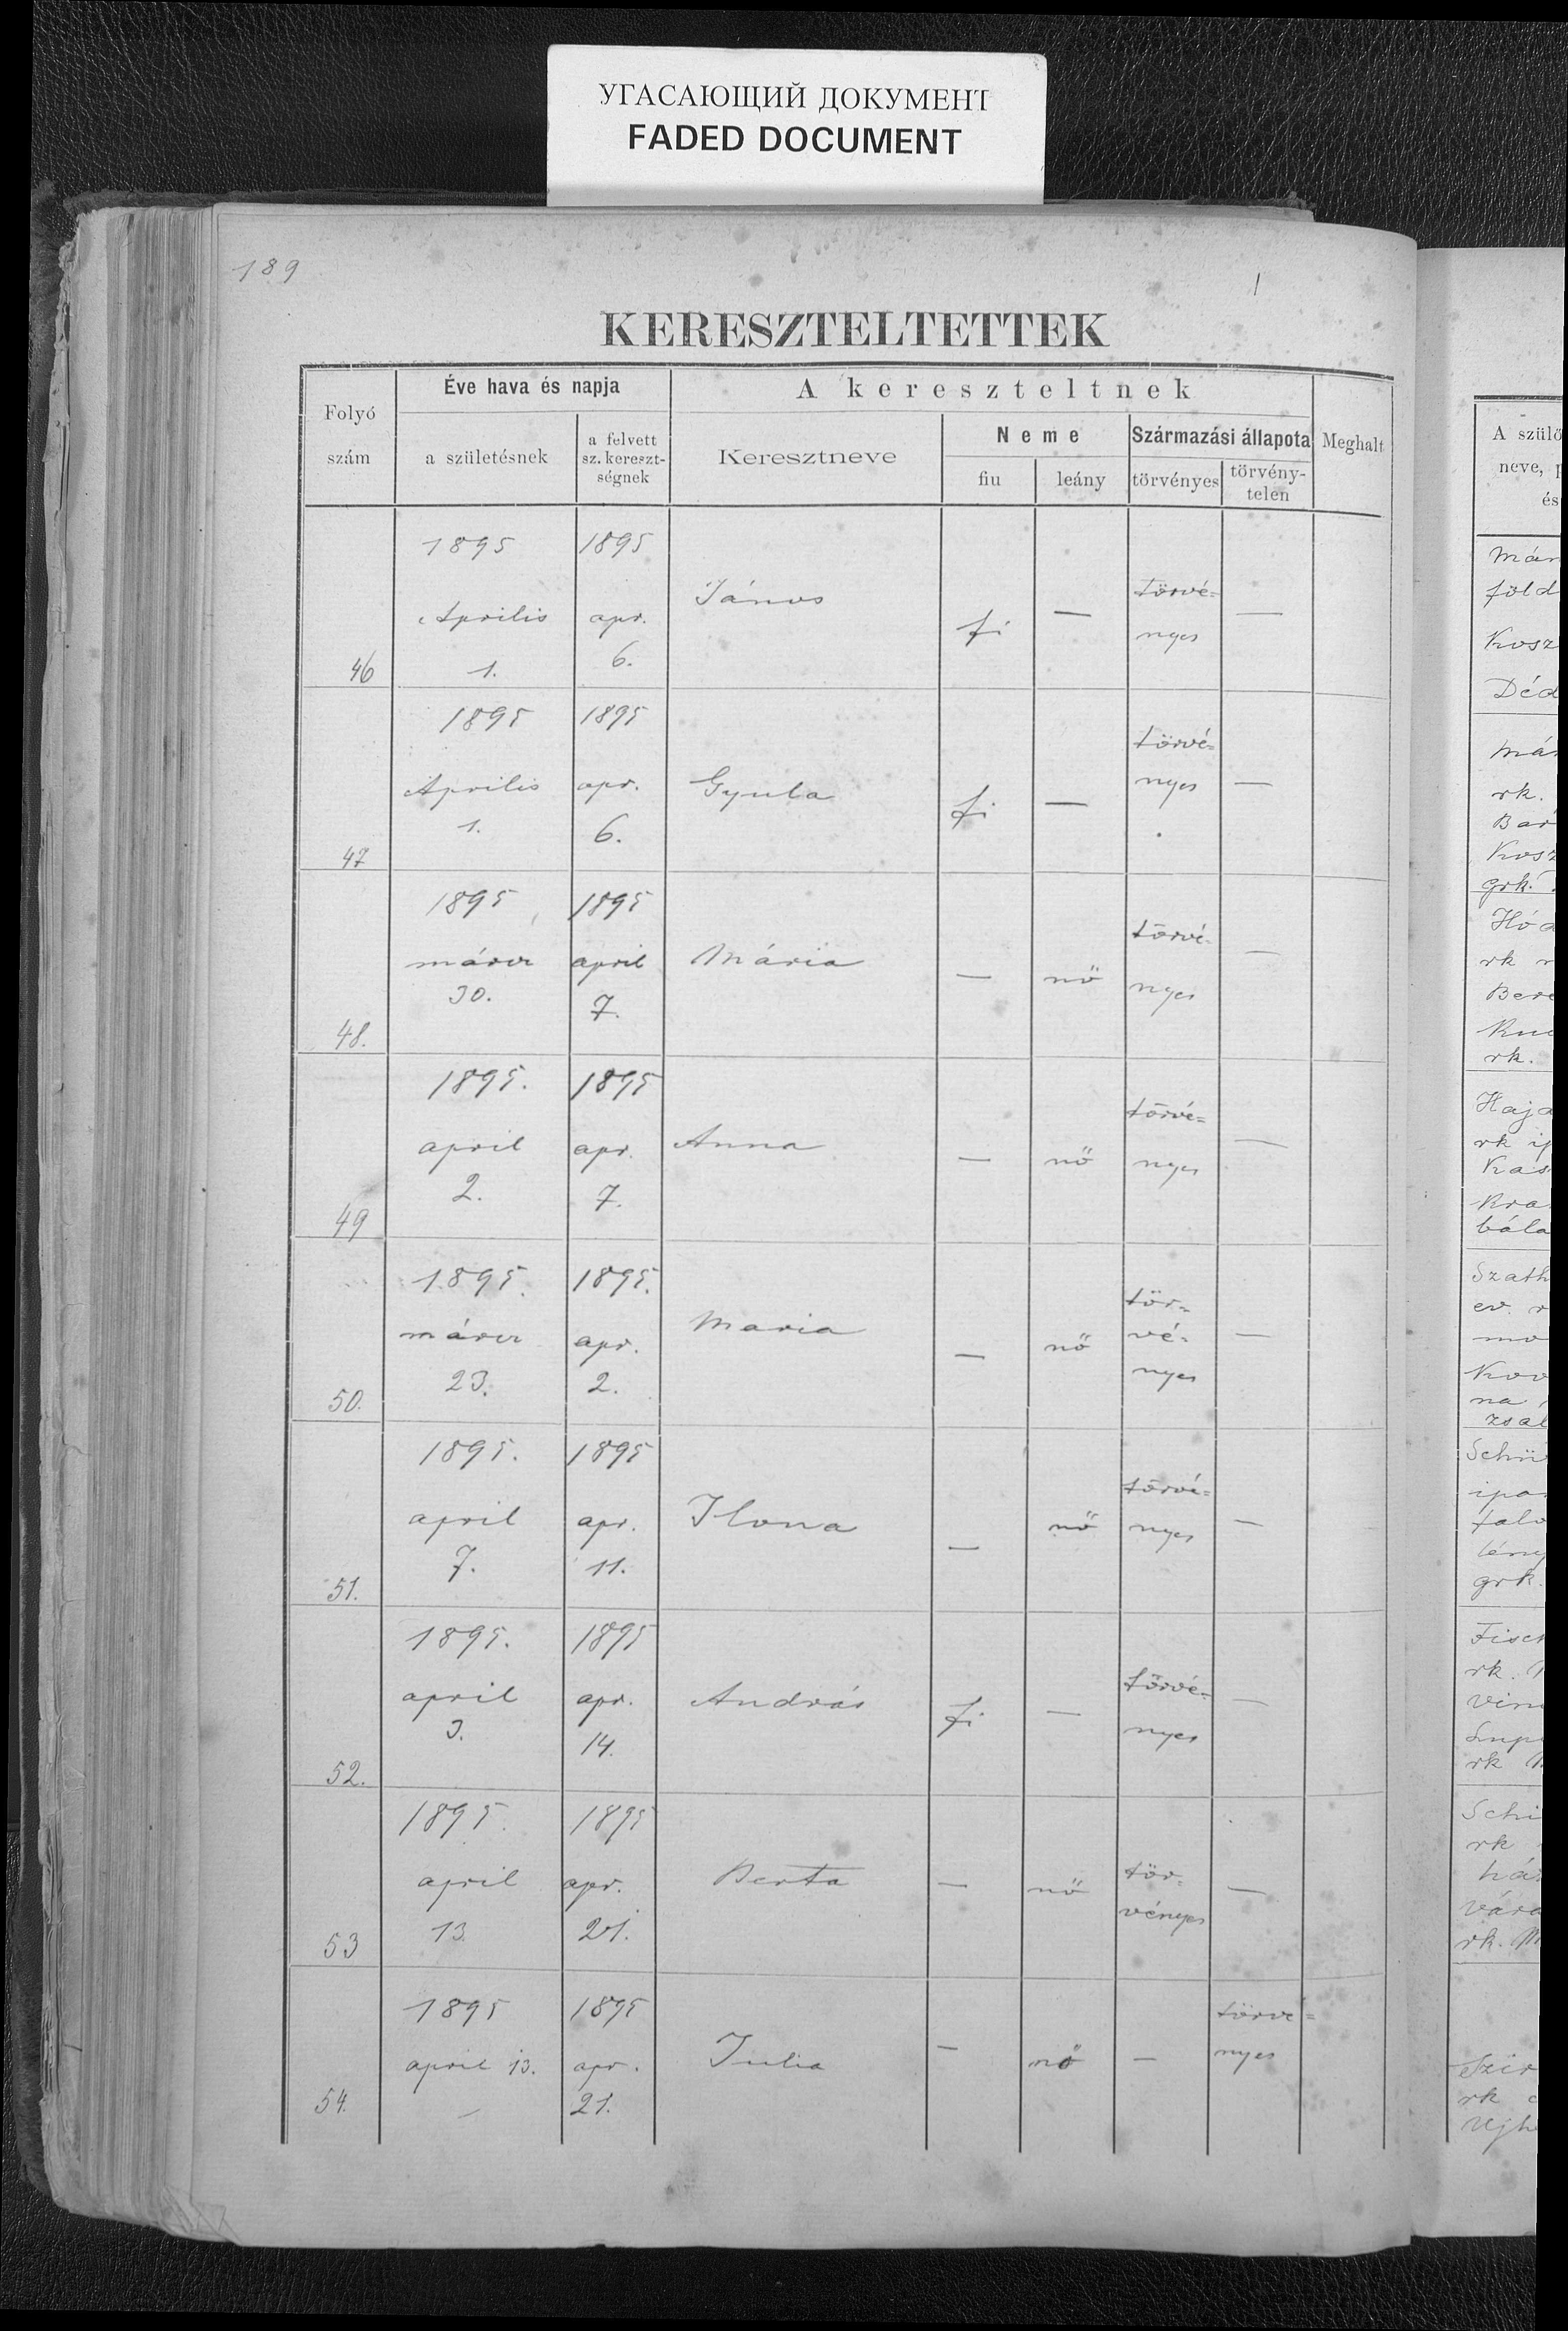 УГАСАЮЩИЙ ДОКУМЕНТ
FADED DOCUMENT
189
KERESZTELTETTEK
Folyó szám
Éve hava és napja
a születésnek
a felvett sz. kereszt-ségnek
A kereszteltnek
Keresztneve
Neme
fiu
leány
Származási állapota
törvényes
törvény-telen
Meghalt
46
1895
Aprilis
1.
1895
apr.
6.
János
fi
—
törvé=
nyes
—
47
1895
Aprilis
1.
1895
apr.
6.
Gyula
fi
—
törvé=
nyes
—
48.
1895
márcz
30.
1895
april
7.
Mária
—
nő
törvé-
nyes
—
49
1895.
april
2.
1895
apr.
7.
Anna
—
nő
törvé=
nyes
—
50.
1895.
márcz
23.
1895.
apr.
2.
Maria
—
nő
tör=
vé-
nyes
—
51.
1895.
april
7.
1895
apr.
11.
Ilona
—
nő
törvé=
nyes
—
52.
1895.
april
3.
1895
apr.
14.
András
fi
—
törvé=
nyes
—
53
1895.
april
13.
1895
apr.
21.
Berta
—
nő
tör=
vényes
—
54.
1895
april 13.
1895
apr.
21.
Julia
—
nő
—
törvé=
nyes
A szülő
neve, p
és
Már
föld
Kosz
Déd
Má
rk.
Bar
Kosz
grk.
Hód
rk
Bere
rk.
Haja
rk ip
Kas
Kra
bála
Szath
ev. r
mo
Kov
na
zsál
Schü
ipar
falv
lény
grk.
Fisch
rk.
Vin
Lup
rk
Schi
rk
ház
vára
rk. M
Szir
rk
Ujh